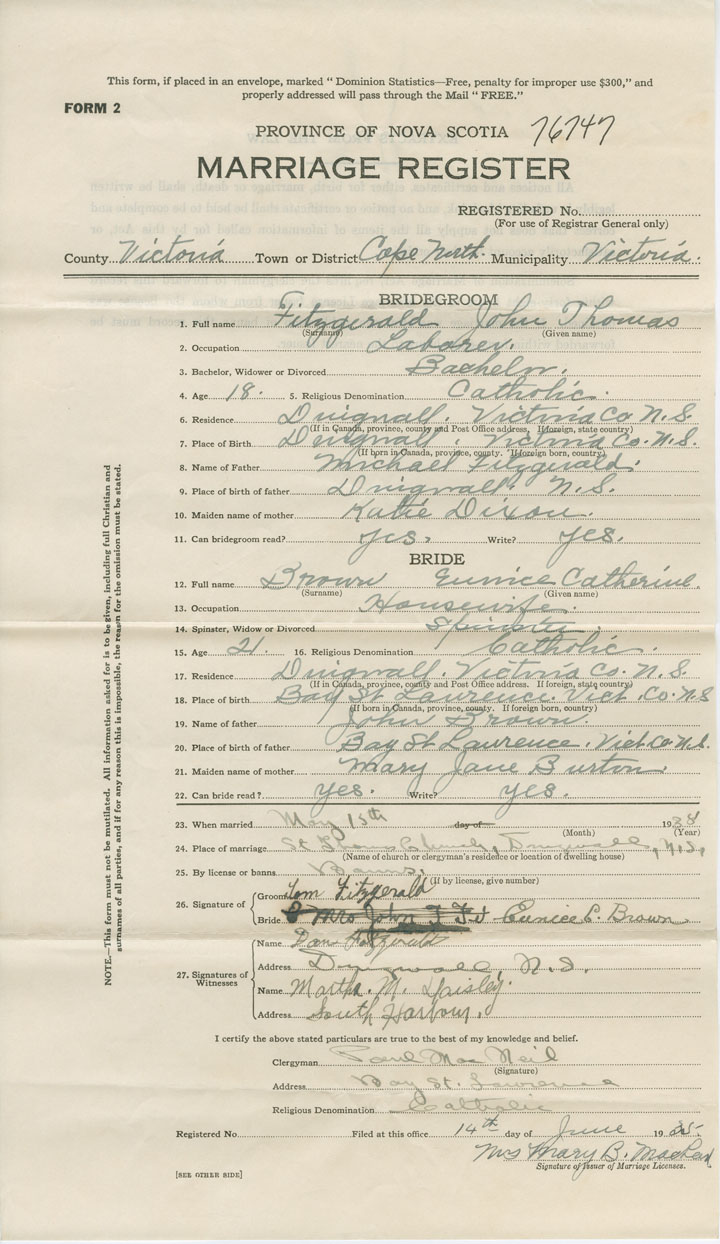 This form, if placed in an envelope, marked “ Dominion Statistics—Free, penalty for improper use $300,” and
properly addressed will pass through the Mail “ FREE.”
FORM 2
PROVINCE OF NOVA SCOTIA 76747
MARRIAGE REGISTER
REGISTERED No.
(For use of Registrar General only)
County Victoria Town or District Cape North. Municipality Victoria.
BRIDEGROOM
1. Full name Fitzgerald John Thomas
(Surname) (Given name)
2. Occupation Laborer.
3. Bachelor, Widower or Divorced Bachelor.
4. Age 18. 5. Religious Denomination Catholic.
6. Residence Dingwall. Victoria Co. N.S.
(If in Canada, province, county and Post Office address. If foreign, state country)
7. Place of Birth Dingwall. Victoria Co. N.S.
(If born in Canada, province, county. If foreign born, country)
8. Name of Father Michael Fitzgerald.
9. Place of birth of father Dingwall. N.S.
10. Maiden name of mother Katie Dixon.
11. Can bridegroom read? yes. Write? yes.
BRIDE
12. Full name Brown Eunice Catherine.
(Surname) (Given name)
13. Occupation Housewife.
14. Spinster, Widow or Divorced Spinster
15. Age 21. 16. Religious Denomination Catholic.
17. Residence Dingwall. Victoria Co. N.S.
(If in Canada, province, county and Post Office address. If foreign, state country)
18. Place of birth Bay St Laurence. Vict. Co. N.S
(If born in Canada, province, county. If foreign born, country)
19. Name of father John Brown.
20. Place of birth of father Bay St Lawrence. Vict. Co. N.S.
21. Maiden name of mother Mary Jane Burton.
22. Can bride read? yes. Write? yes.
23. When married May 15th day of 19
(Month) (Year)
24. Place of marriage St Church, Dingwall, N.S.
(Name of church or clergyman's residence or location of dwelling house)
25. By license or banns Banns.
(If by license, give number)
26. Signature of
Groom Tom Fitzgerald
Bride Mrs John F Eunice C. Brown
27. Signatures of Witnesses
Name Dan Fitzgerald
Address Dingwall, N.S.
Name Martha. M. Daisley.
Address South Harbour.
I certify the above stated particulars are true to the best of my knowledge and belief.
Clergyman Paul MacNeil
(Signature)
Address Bay St. Lawrence
Religious Denomination Catholic
Registered No. Filed at this office 14th day of June 19
Mrs Mary B.
Signature of Issuer of Marriage Licenses.
[SEE OTHER SIDE]
NOTE.—This form must not be mutilated. All information asked for is to be given, including full Christian and
surnames of all parties, and if for any reason this is impossible, the reason for the omission must be stated.